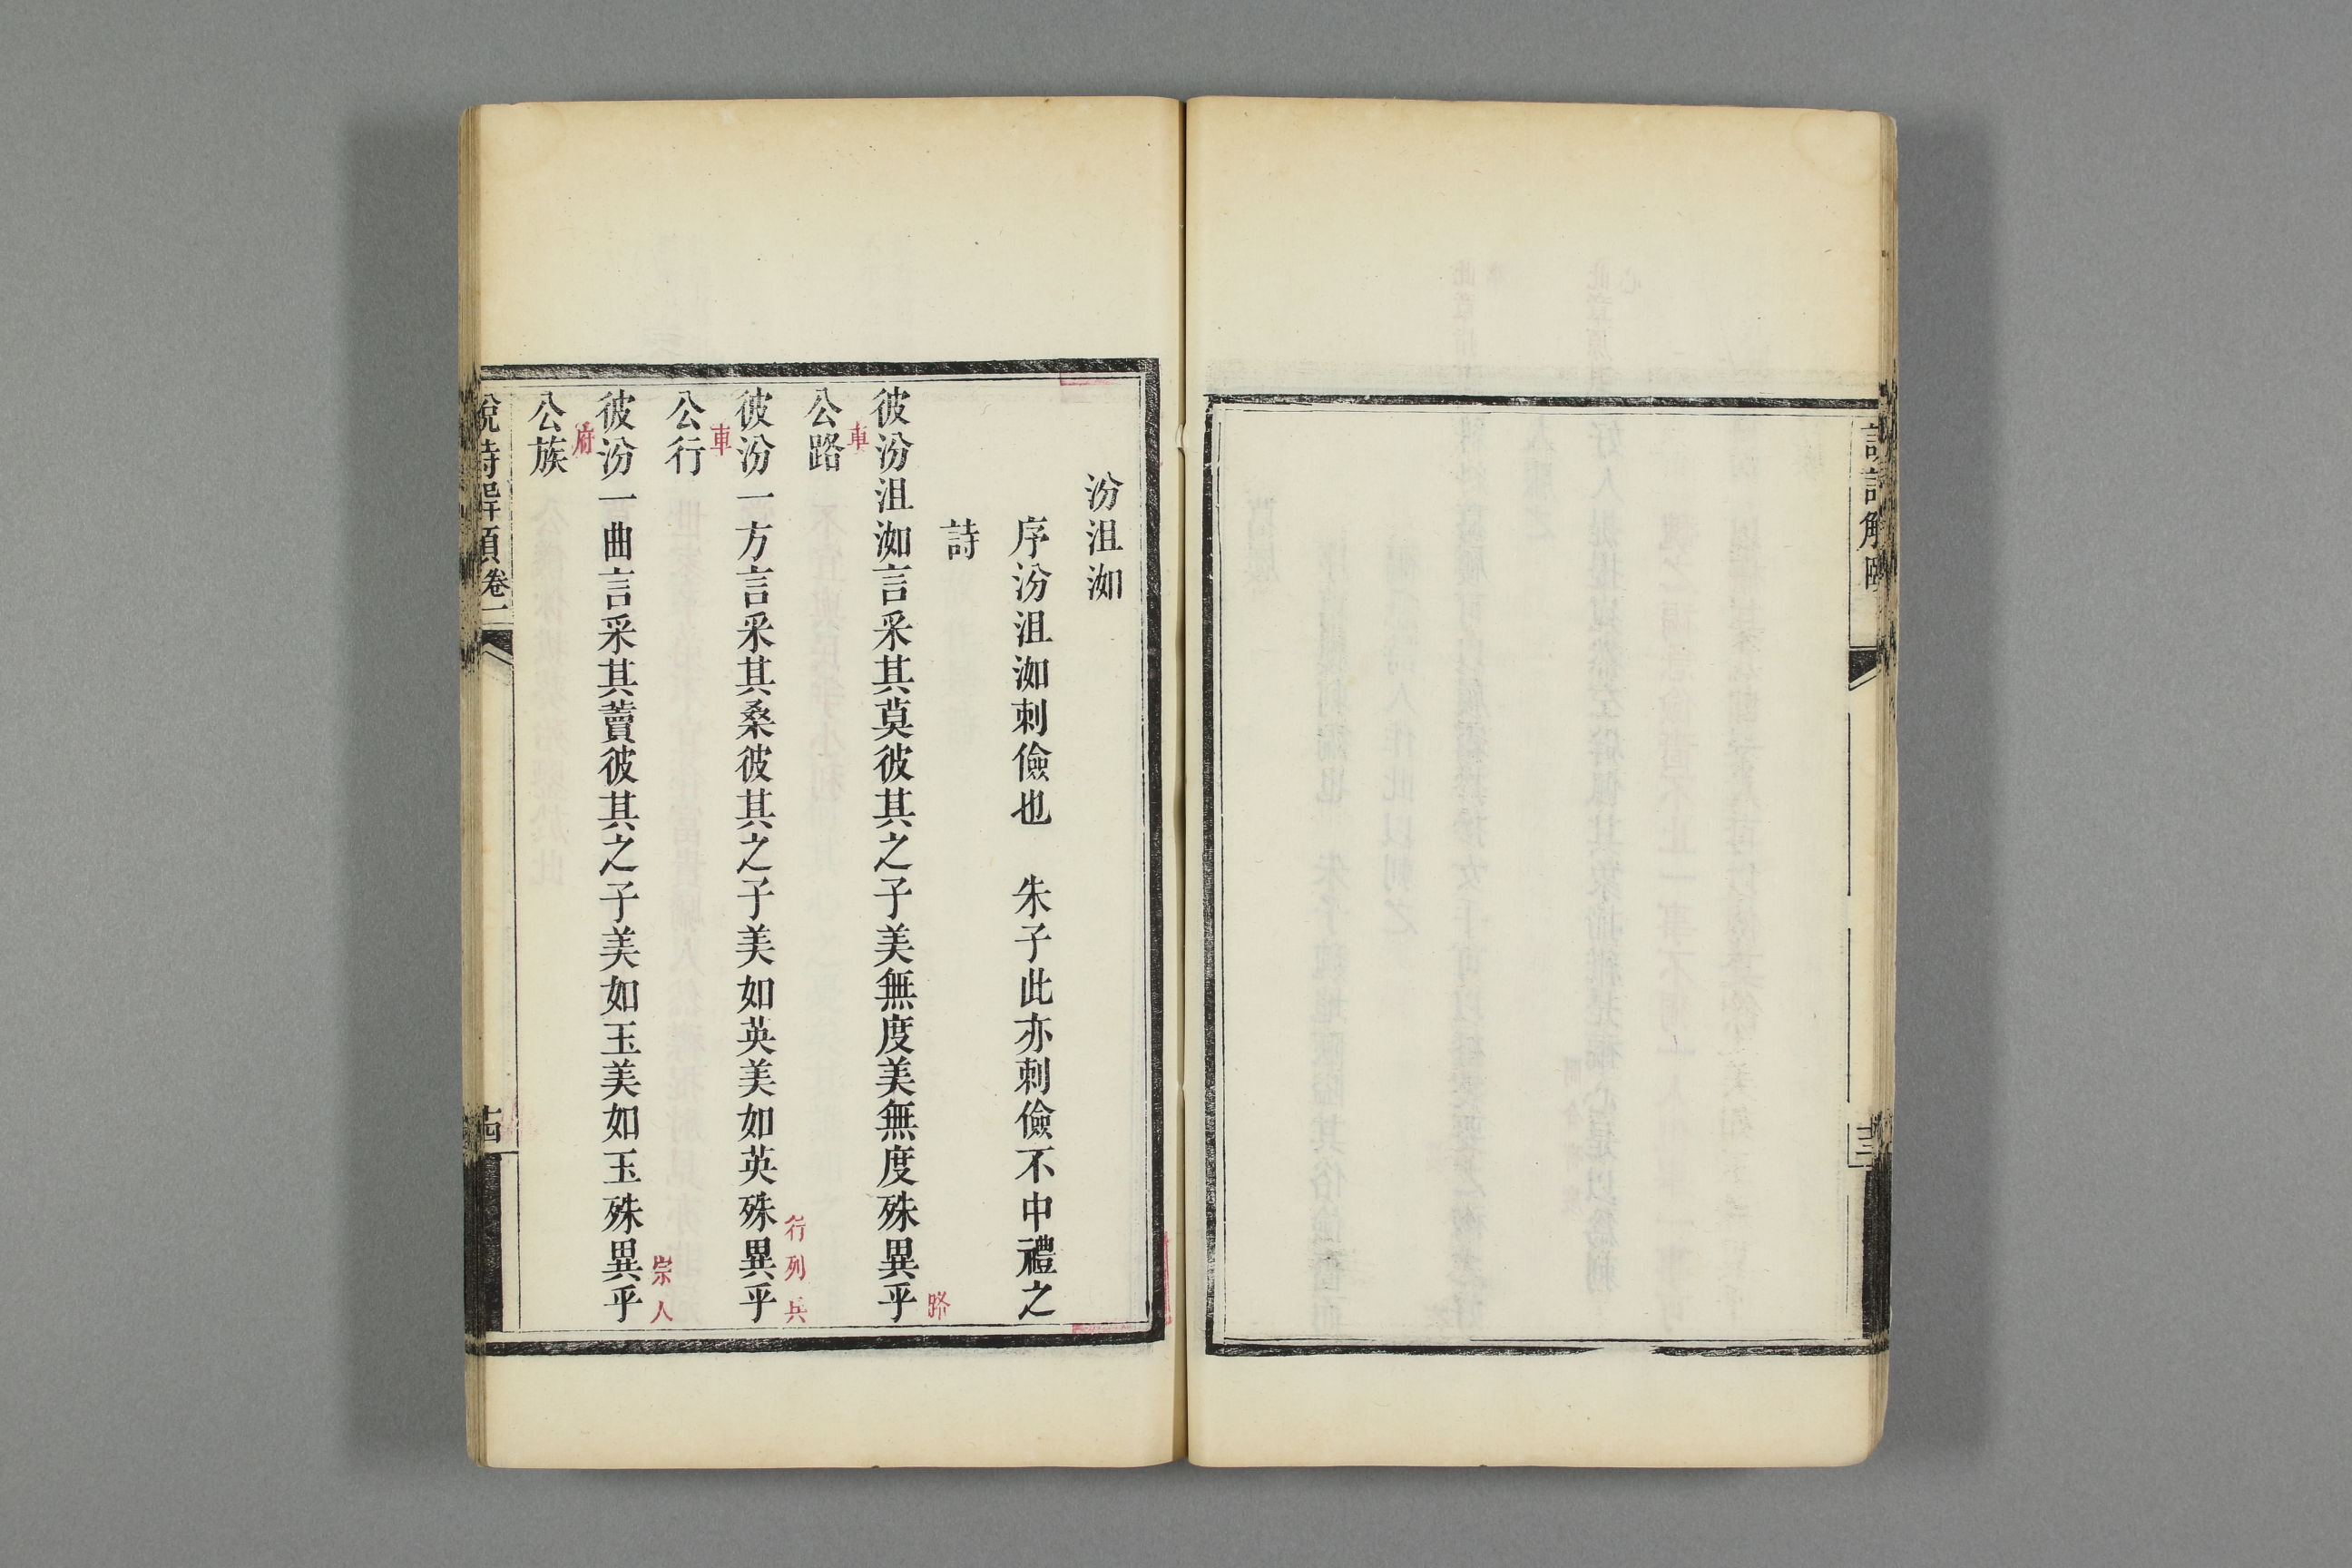 汾沮洳
序汾沮洳刺儉也　朱子此亦刺儉不中禮之
詩
彼汾沮洳言采其莫彼其之子美無度美無度殊異乎
路
公路
車
彼汾一方言采其桑彼其之子美如英美如英殊異乎
行列兵
公行
車
彼汾一曲言采其藚彼其之子美如玉美如玉殊異乎
宗人
公族
府
說詩解頤卷一
十四
十三